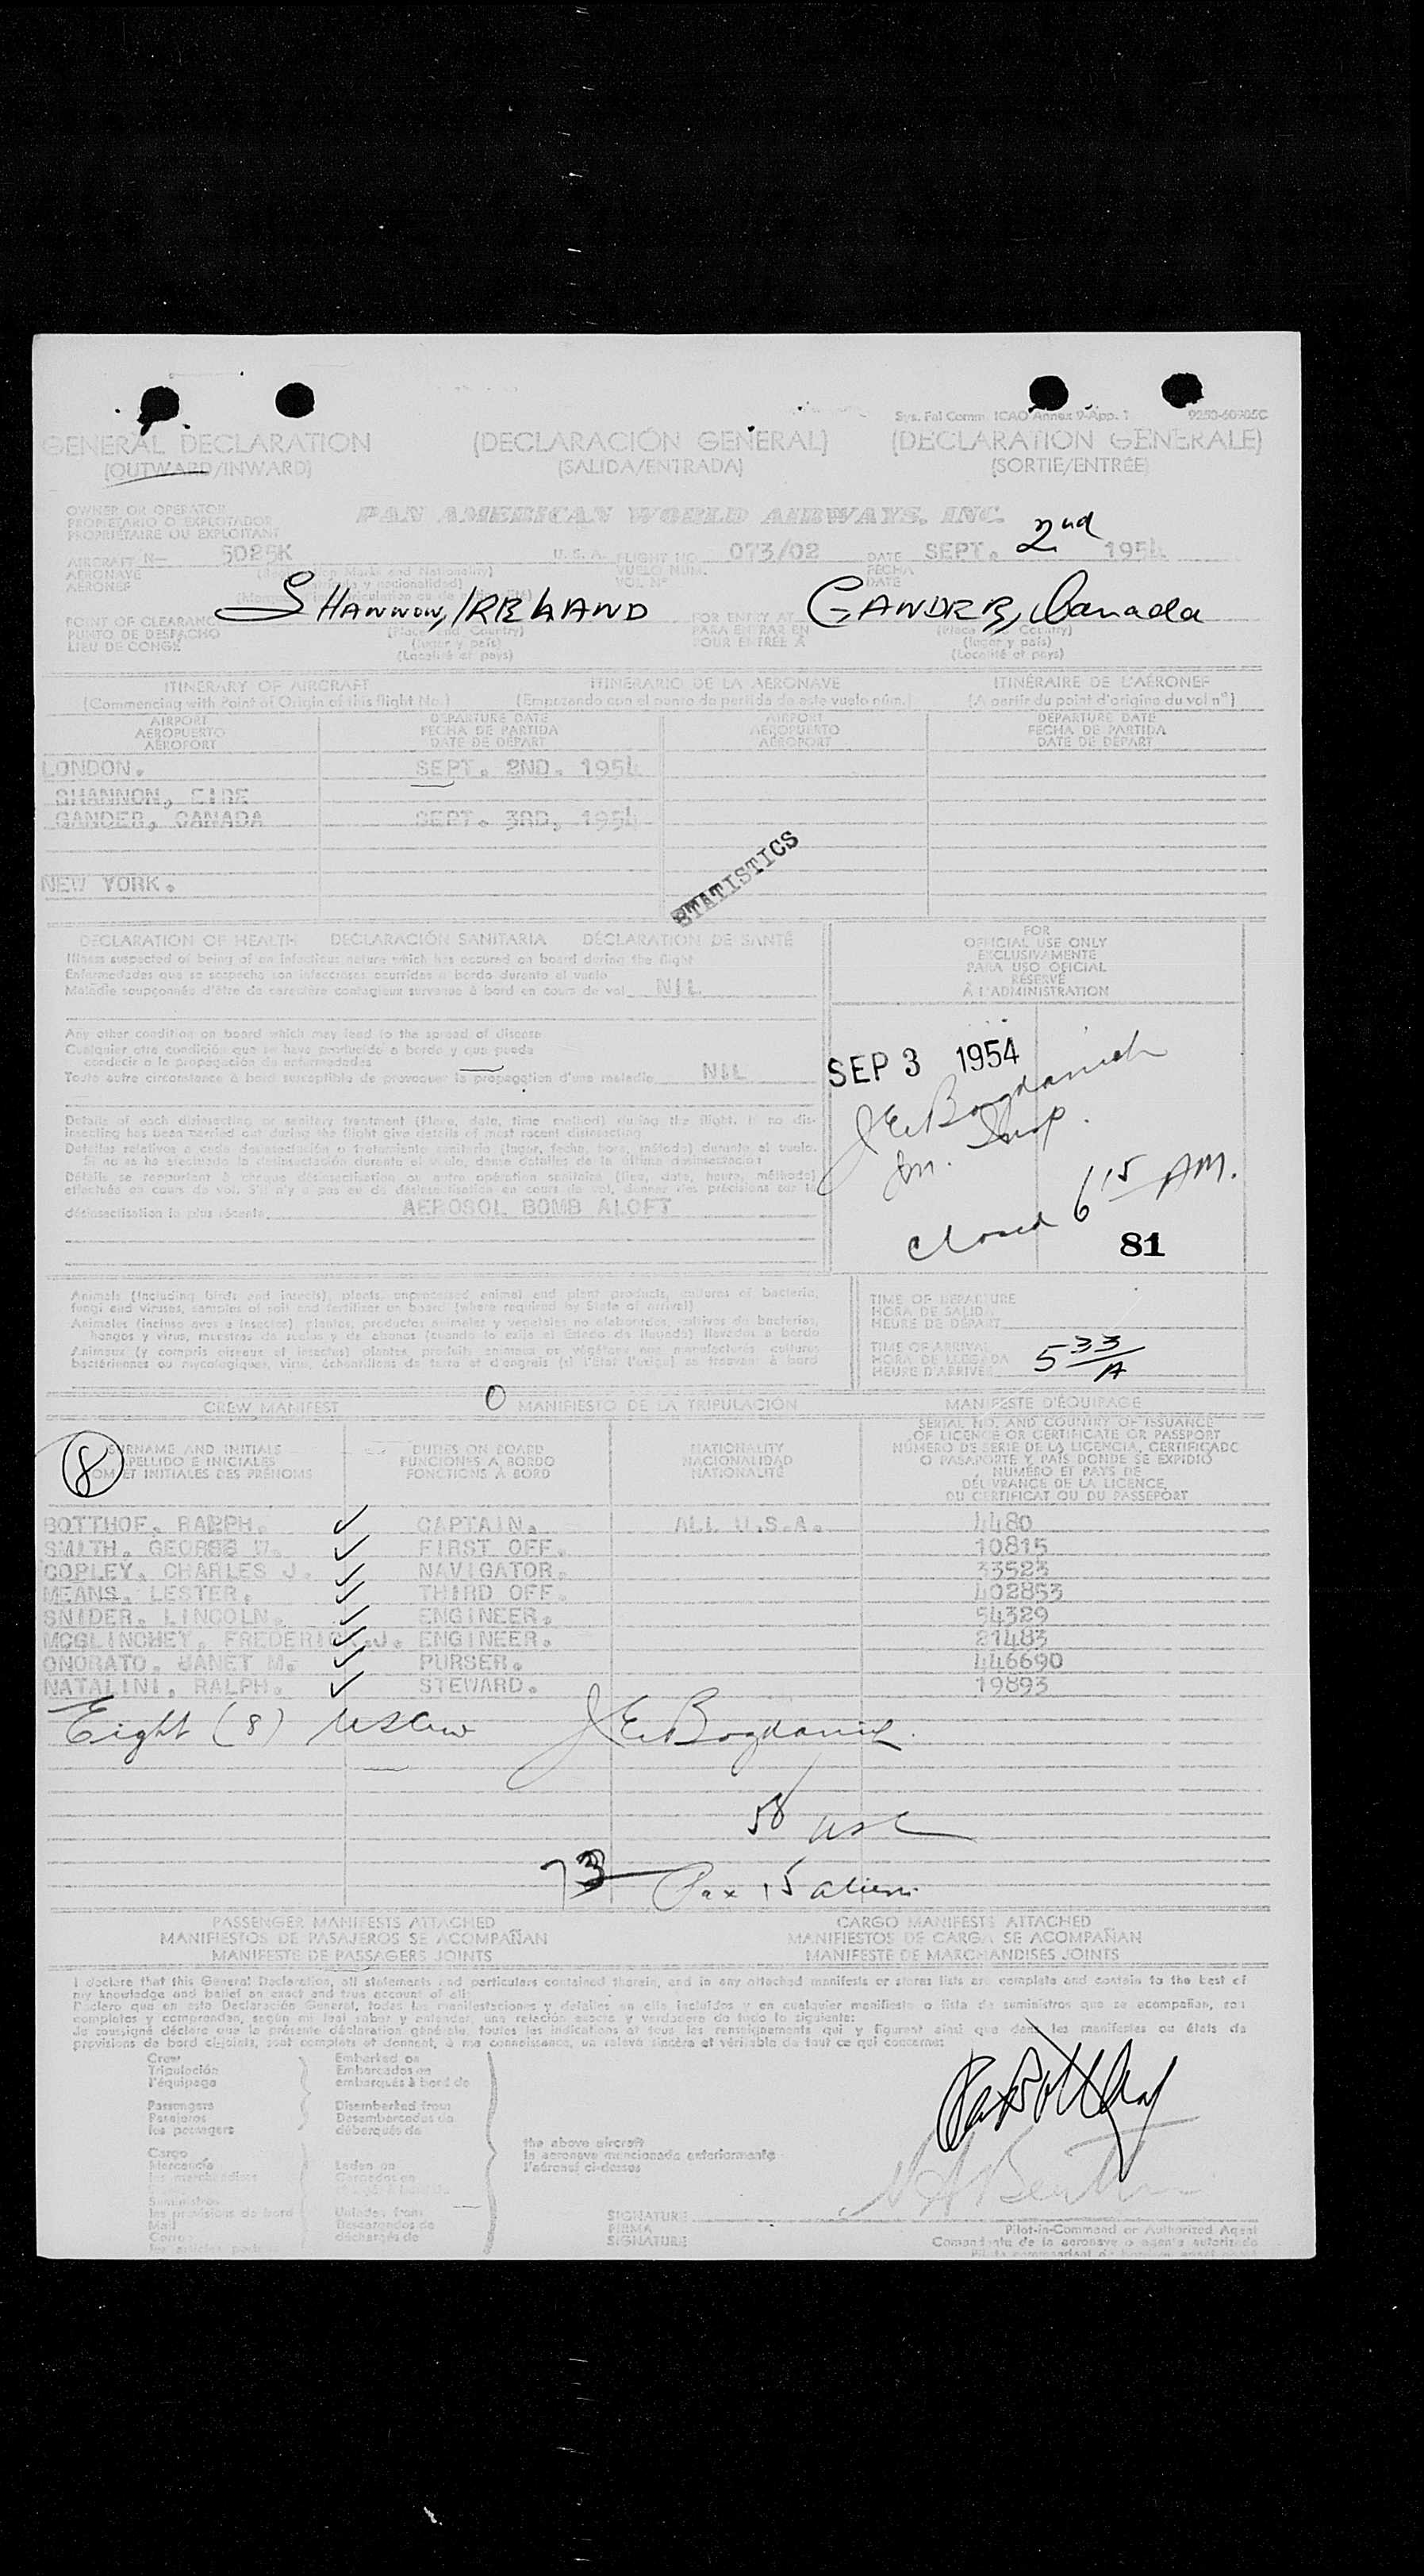 Sys. Fal Comm. ICAO Annex 9-App. 1 9250-60905C
GENERAL DECLARATION (DECLARACIÓN GENERAL) (DECLARATION GENERALE)
(OUTWARD/INWARD) (SALIDA/ENTRADA) (SORTIE/ENTRÉE)
OWNER OR OPERATOR
PROPIETARIO O EXPLOTADOR
PROPRIÉTAIRE OU EXPLOITANT
PAN AMERICAN WORLD AIRWAYS, INC.
AIRCRAFT N— 5025K U.S.A. FLIGHT NO. 073/02 DATE SEPT. 2nd 1954
AERONAVE VUELO NUM. FECHA
AERONEF VOL Nº DATE
POINT OF CLEARANCE SHANNON, IRELAND FOR ENTRY AT GANDER, Canada
PUNTO DE DESPACHO (Place and Country) PARA ENTRAR EN (Place and Country)
LIEU DE CONGÉ (lugar y país) POUR ENTRÉE À (lugar y país)
(Localité et pays) (Localité et pays)
ITINERARY OF AIRCRAFT ITINERARIO DE LA AERONAVE ITINÉRAIRE DE L'AÉRONEF
(Commencing with Point of Origin of this flight No.) (Empezando con el punto de partida de este vuelo núm.) (A partir du point d'origine du vol nº)
AIRPORT DEPARTURE DATE AIRPORT DEPARTURE DATE
AEROPUERTO FECHA DE PARTIDA AEROPUERTO FECHA DE PARTIDA
AÉROPORT DATE DE DÉPART AÉROPORT DATE DE DÉPART
LONDON. SEPT. 2ND. 1954
SHANNON, EIRE
GANDER, CANADA SEPT. 3RD, 1954
NEW YORK.
STATISTICS
DECLARATION OF HEALTH DECLARACIÓN SANITARIA DÉCLARATION DE SANTÉ
Illness suspected of being of an infectious nature which has occured on board during the flight
Enfermedades que se sospecha son infecciosas ocurridas a bordo durante el vuelo
Maladie soupçonnés d'être de caractère contagieux survenue à bord en cours de vol NIL
Any other condition on board which may lead to the spread of disease
Cualquier otra condición que se haya producido a bordo y que pueda
conducir a la propagación de enfermedades
Toute autre circonstance à bord susceptible de provoquer la propagation d'une maladie NIL
Details of each disinsecting or sanitary treatment (Place, date, time method) during the flight. If no dis-
insecting has been carried out during the flight give details of most recent disinsecting
Detalles relativos a cada desinsectación o tratamiento sanitario (lugar, fecha, hora, método) durante el vuelo.
Si no se ha efectuado la desinsectación durante el vuelo, dense detalles de la última desinsectación
Détails se rapportant à chaque désinsectisation ou autre opération sanitaire (lieu, date, heure, méthode)
effectuée en cours de vol. S'il n'y a pas eu de désinsectisation en cours de vol, donner des précisions sur la
désinsectisation la plus récente AEROSOL BOMB ALOFT
FOR
OFFICIAL USE ONLY
EXCLUSIVAMENTE
PARA USO OFICIAL
RÉSERVÉ
À L'ADMINISTRATION
SEP 3 1954
J E Bogdanich
Im. Insp.
Closed 6 15 AM.
81
Animals (including birds and insects), plants, unprocessed animal and plant products, cultures of bacteria,
fungi and viruses, samples of soil and fertilizer on board (where required by State of arrival)
Animales (incluso aves e insectos) plantas, productos animales y vegetales no elaborados, cultivos de bacterias,
hongos y virus, muestras de suelos y de abonos (cuando lo exija el Estado de llegada) llevados a bordo
Animaux (y compris oiseaux et insectes) plantes, produits animaux ou végétaux non manufacturés cultures
bactériennes ou mycologiques, virus, échantillons de terre et d'engrais (si l'Etat l'exige) se trouvant à bord
TIME OF DEPARTURE
HORA DE SALIDA
HEURE DE DÉPART
TIME OF ARRIVAL
HORA DE LLEGADA 5 33/A
HEURE D'ARRIVÉE
0
CREW MANIFEST MANIFIESTO DE LA TRIPULACIÓN MANIFESTE D'ÉQUIPAGE
8
SURNAME AND INITIALS DUTIES ON BOARD NATIONALITY
APELLIDO E INICIALES FUNCIONES A BORDO NACIONALIDAD
NOM ET INITIALES DES PRÉNOMS FONCTIONS À BORD NATIONALITÉ
SERIAL NO. AND COUNTRY OF ISSUANCE
OF LICENCE OR CERTIFICATE OR PASSPORT
NÚMERO DE SERIE DE LA LICENCIA, CERTIFICADO
O PASAPORTE Y PAÍS DONDE SE EXPIDIÓ
NUMÉRO ET PAYS DE
DÉLIVRANCE DE LA LICENCE,
DU CERTIFICAT OU DU PASSEPORT
BOTTHOF, RALPH. CAPTAIN. ALL U.S.A. 4480
SMITH. GEORGE W. FIRST OFF. 10815
COPLEY. CHARLES J. NAVIGATOR. 33523
MEANS. LESTER. THIRD OFF. 402853
SNIDER. LINCOLN. ENGINEER. 54329
MCGLINCHEY, FREDERICK.J. ENGINEER. 21483
ONORATO. JANET M. PURSER. 446690
NATALINI, RALPH. STEWARD. 19893
Eight (8) USCew J E Bogdanich
58 usc
73 Pax 15 aliens
PASSENGER MANIFESTS ATTACHED CARGO MANIFESTS ATTACHED
MANIFIESTOS DE PASAJEROS SE ACOMPAÑAN MANIFIESTOS DE CARGA SE ACOMPAÑAN
MANIFESTE DE PASSAGERS JOINTS MANIFESTE DE MARCHANDISES JOINTS
I declare that this General Declaration, all statements and particulars contained therein, and in any attached manifests or stores lists are complete and contain to the best of
my knowledge and belief an exact and true account of all:
Declaro que en esta Declaración General, todas las manifestaciones y detalles en ella incluidos y en cualquier manifiesto o lista de suministros que se acompañan, son
completos y comprenden, según mi leal saber y entender, una relación exacta y verdadera de todo lo siguiente:
Je soussigné déclare que la présente déclaration générale, toutes les indications et tous les renseignements qui y figurent ainsi que dans les manifestes ou états de
provisions de bord ci-joints, sont complets et donnent, à ma connaissance, un relevé sincère et véritable de tout ce qui concerne:
Crew Embarked on
Tripulación Embarcados en
l'équipage embarqués à bord de
Passengers Disembarked from
Pasajeros Desembarcados de
les passagers débarqués de
Cargo the above aircraft
Mercancía Laden on la aeronave mencionada anteriormente
les marchandises Cargados en l'aéronef ci-dessus
Suministros
les provisions de bord Unladen from
Mail Descargados de
Correo déchargés de
SIGNATURE
FIRMA
SIGNATURE
Pilot-in-Command or Authorized Agent
Comandante de la aeronave o agente autorizado